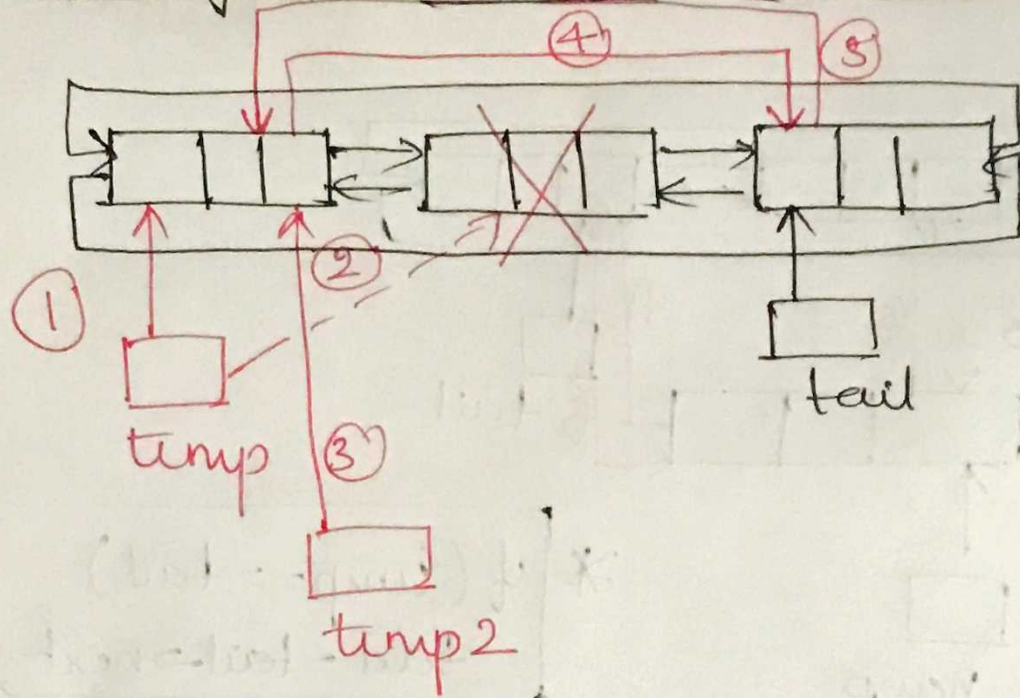 4
5
2
1
tail
temp
3
temp2